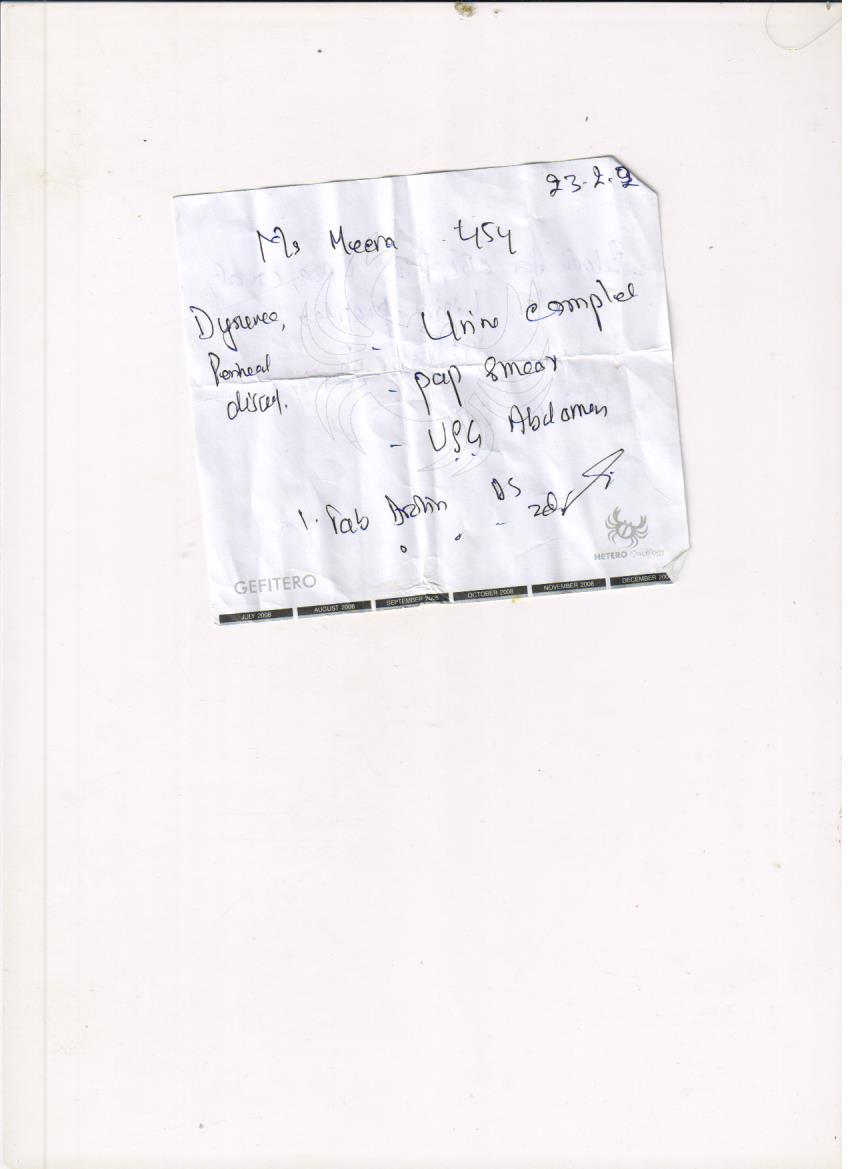 23.2.9
Ms Meera 454
Dysurea, - Urine complet
Perineal - pap smear
discd. - USG Abdomen
1. Tab DS
GEFITERO
HETERO Oncology
JULY 2008 AUGUST 2008 SEPTEMBER 2008 OCTOBER 2008 NOVEMBER 2008 DECEMBER 200